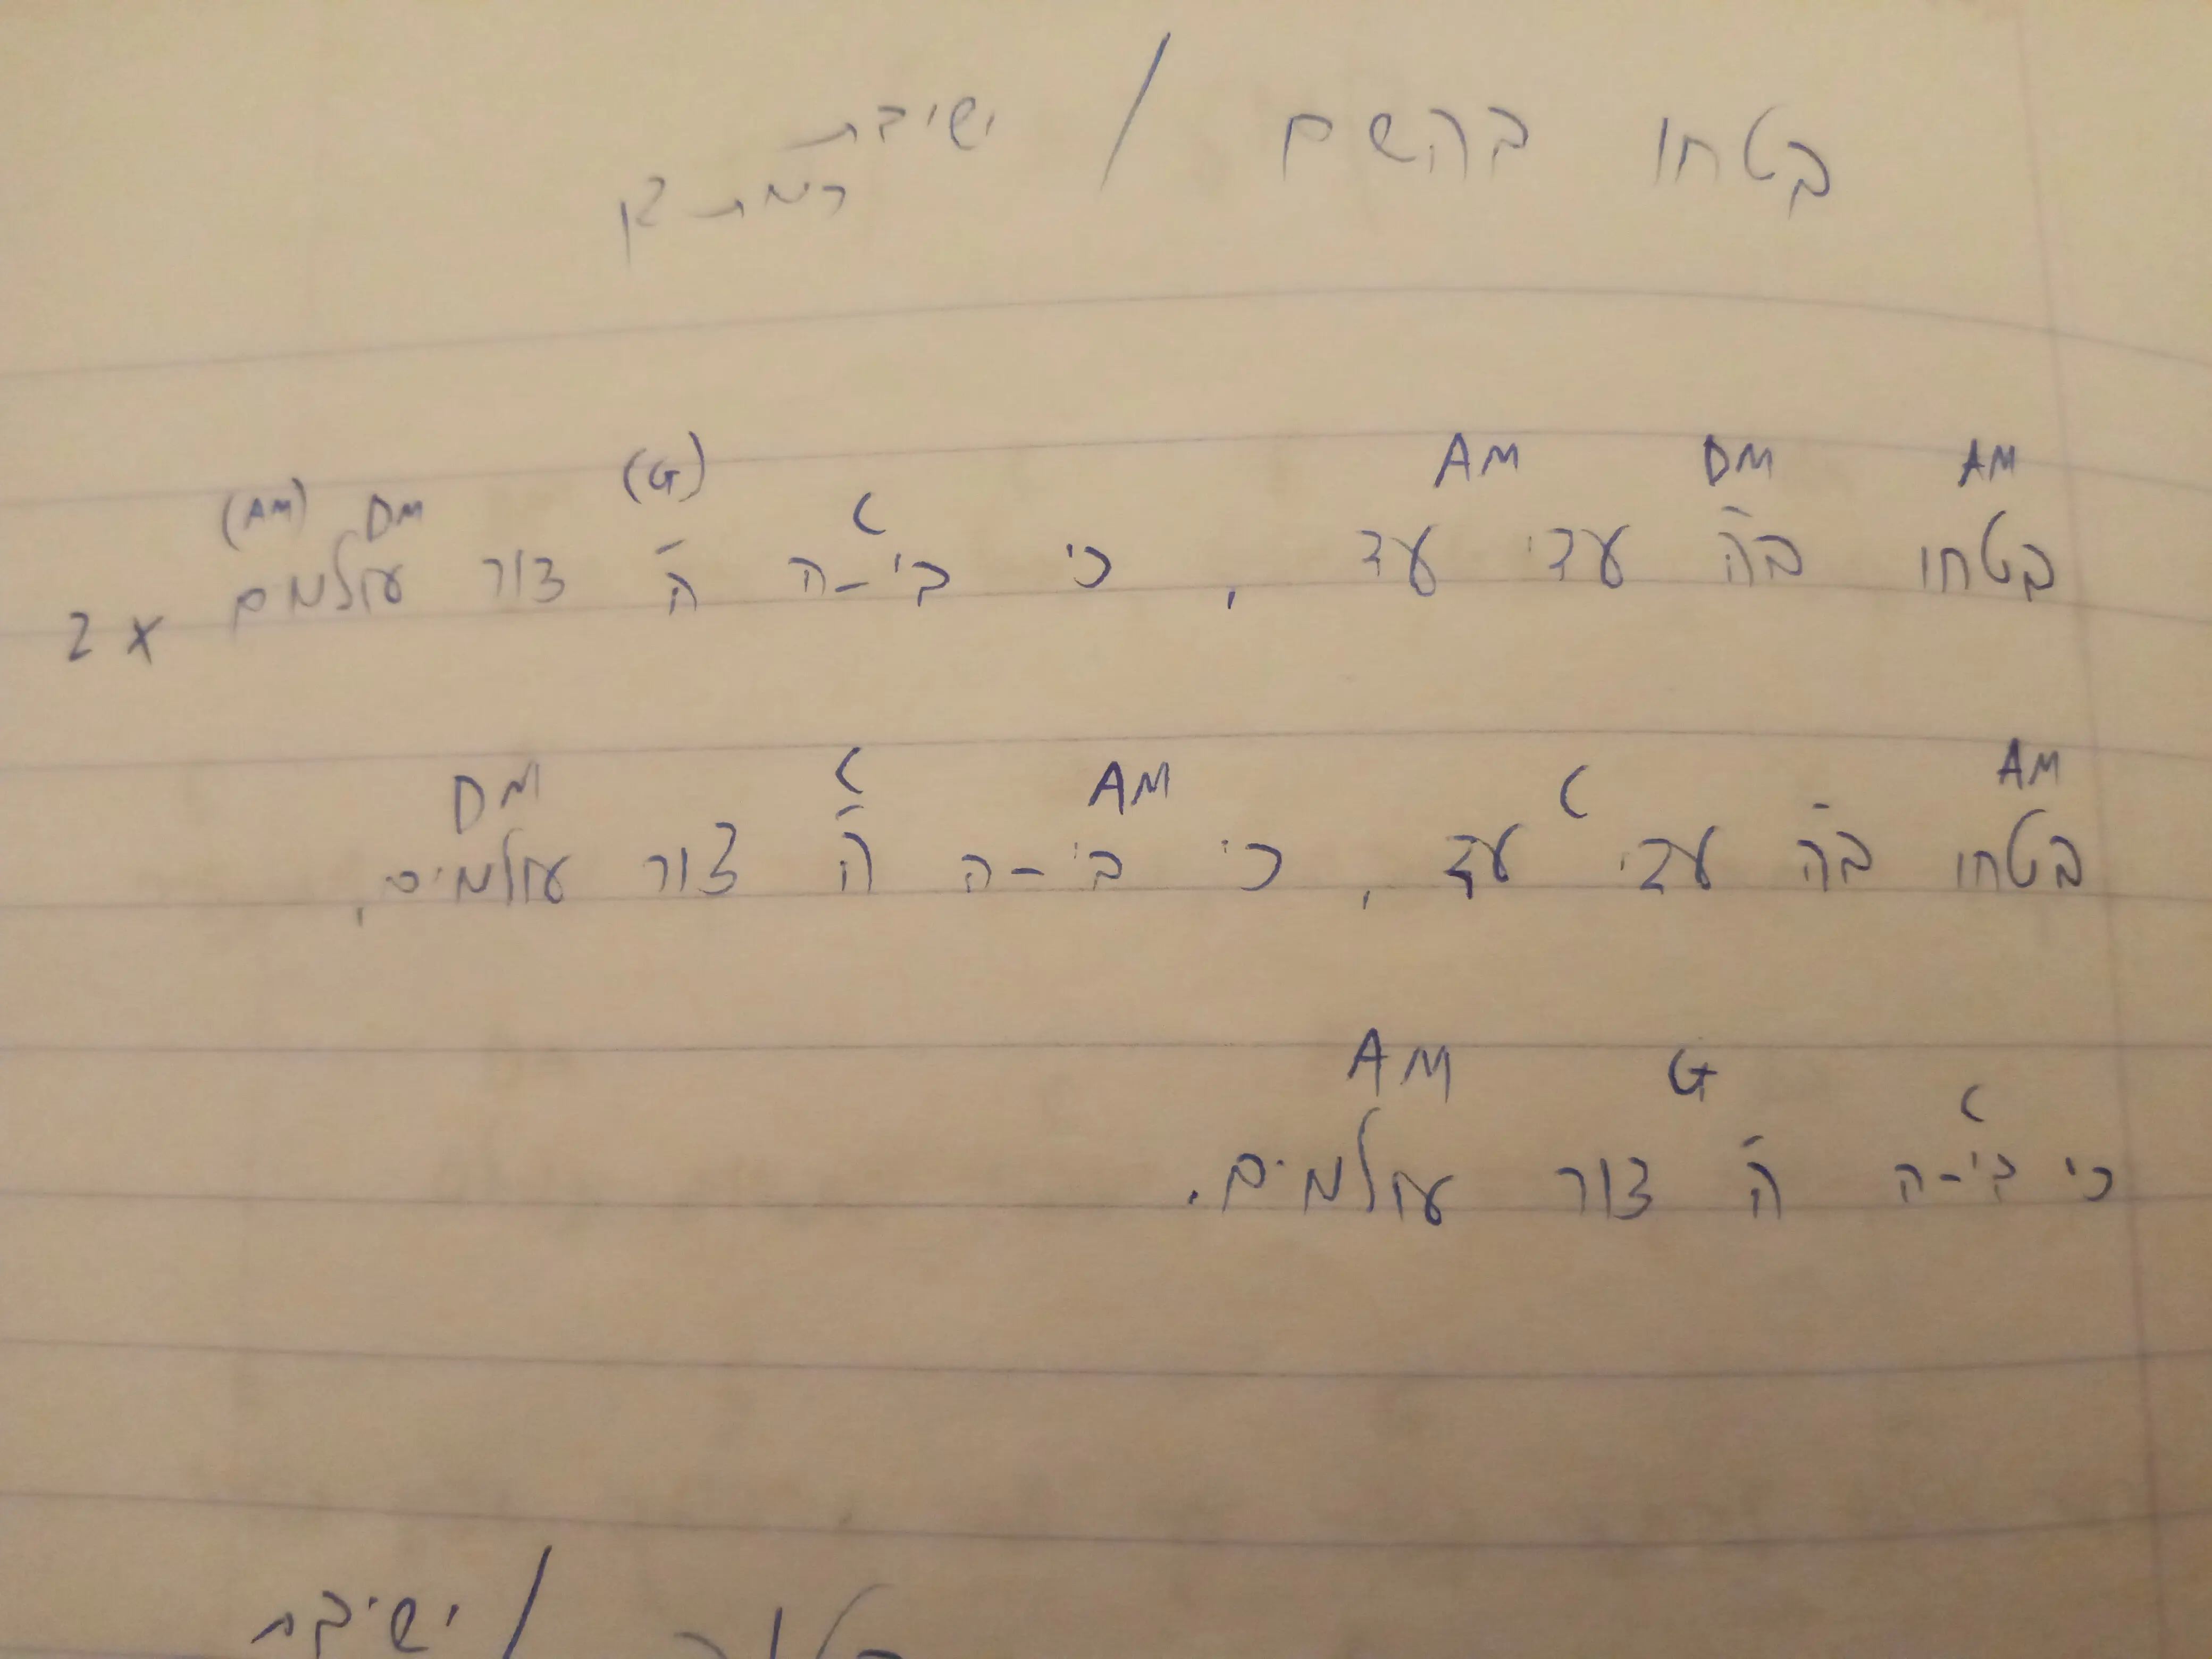 בטחו בהשם / ישיבת
רמת גן
AM DM AM C (G) DM (AM)
בטחו בה' עדי עד, כי בי-ה ה' צור עולמים x 2
AM C AM C DM
בטחו בה' עדי עד, כי בי-ה ה' צור עולמים,
C G AM
כי בי-ה ה' צור עולמים.
/ ישיבת